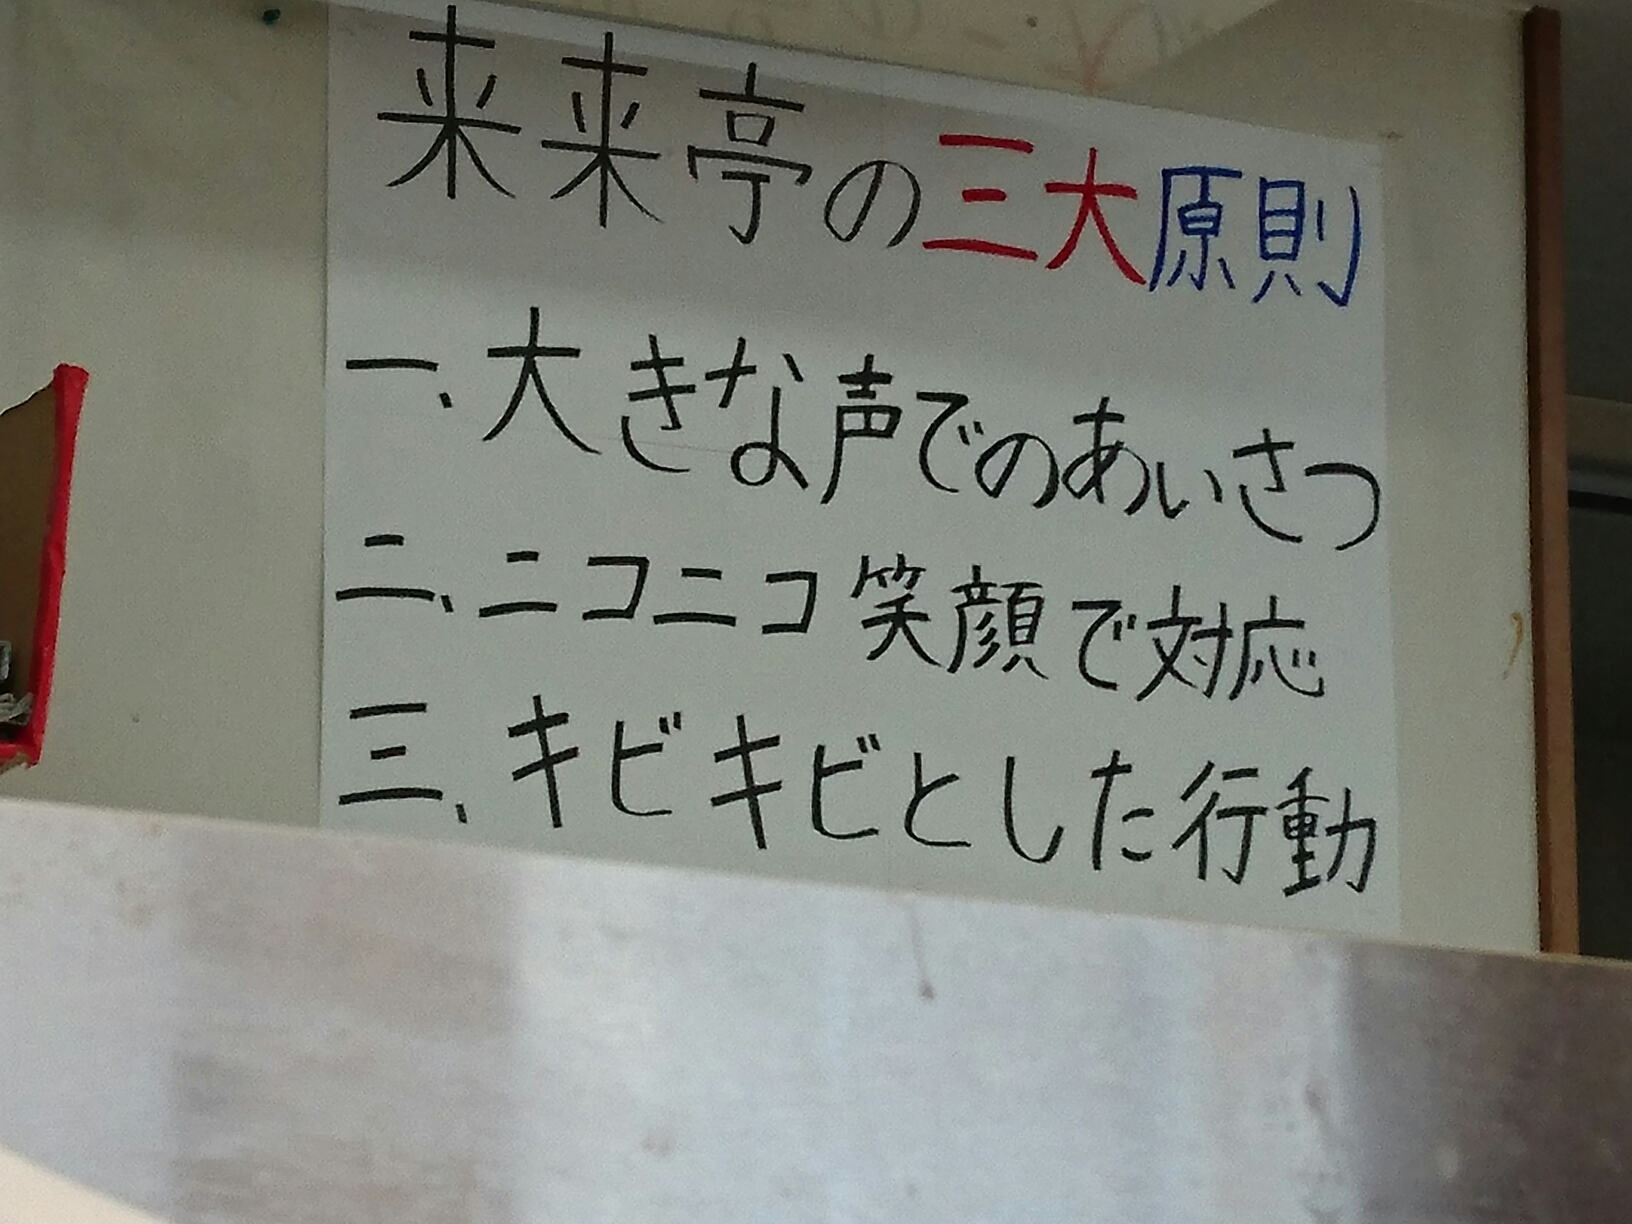 来来亭の三大原則
一、大きな声でのあいさつ
二、ニコニコ笑顔で対応
三、キビキビとした行動